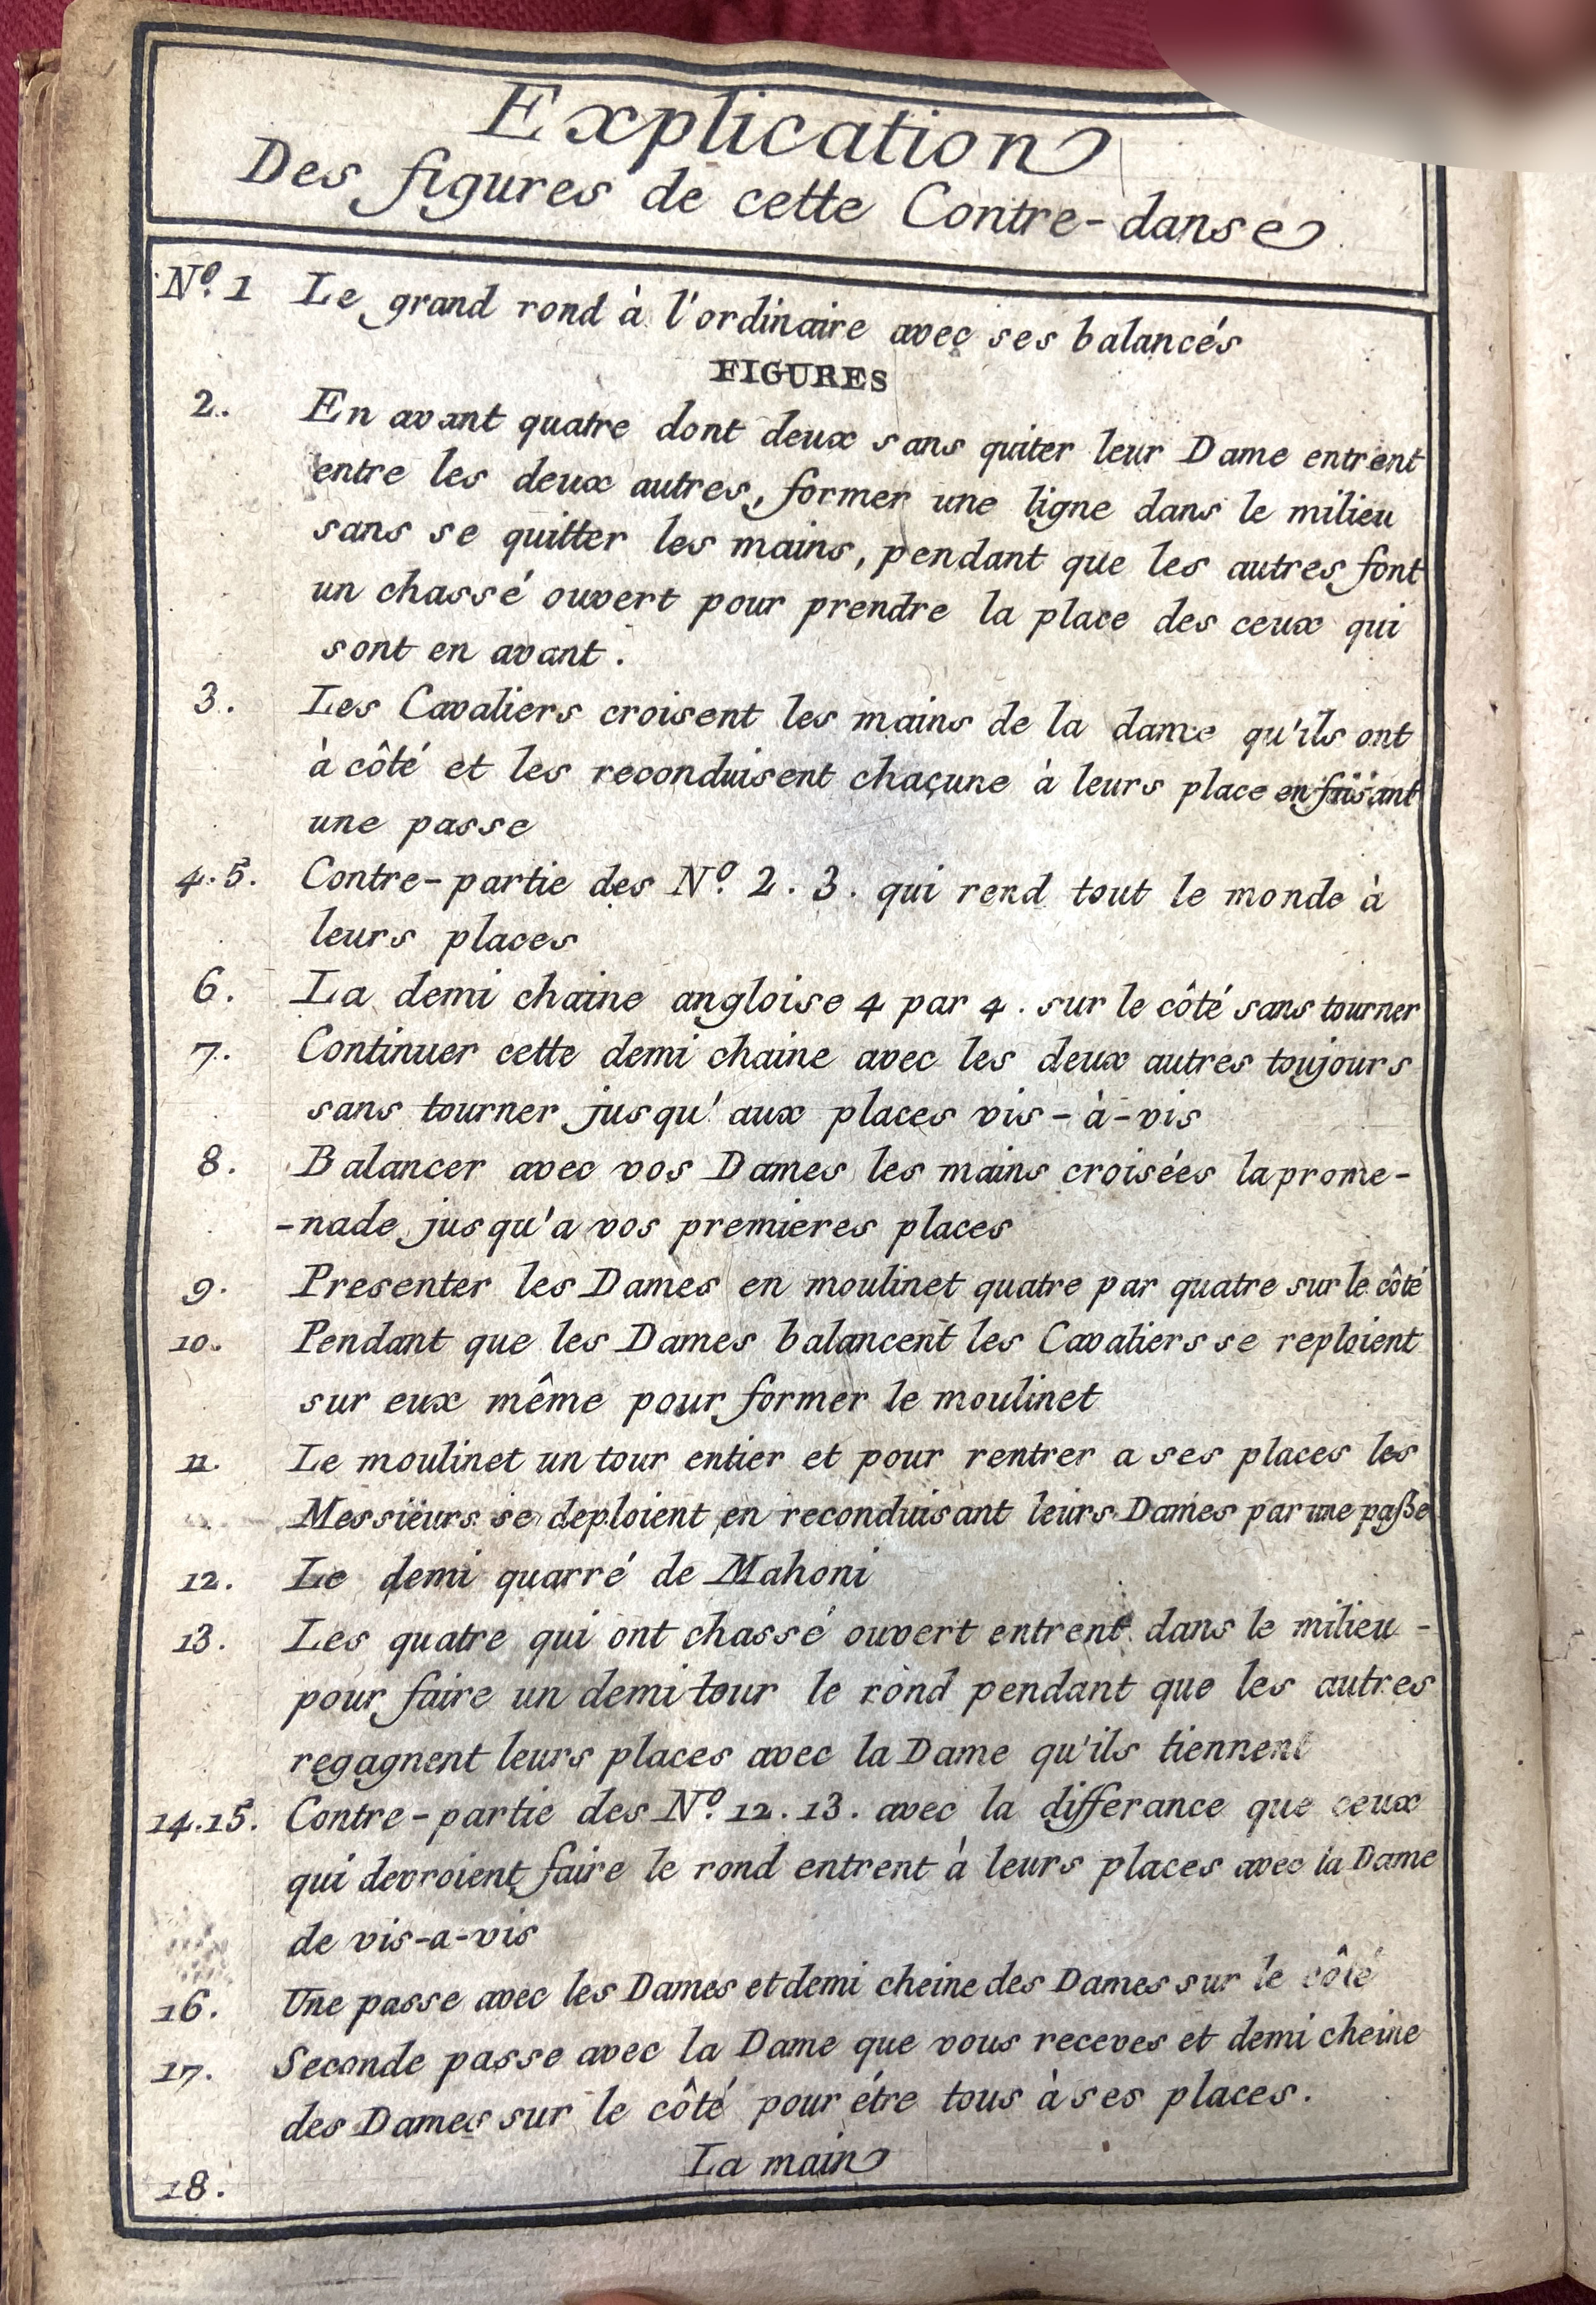 Explication
Des figures de cette Contre-danse
N.º 1 Le grand rond à l'ordinaire avec ses balancés
FIGURES
2. En avant quatre dont deux sans quiter leur Dame entrent
entre les deux autres, former une ligne dans le milieu
sans se quitter les mains, pendant que les autres font
un chassé ouvert pour prendre la place des ceux qui
sont en avant.
3. Les Cavaliers croisent les mains de la dame qu'ils ont
à côté et les reconduisent chaçune à leurs place en faisant
une passe
4. 5. Contre-partie des N.º 2. 3. qui rend tout le monde à
leurs places
6. La demi chaine angloise 4 par 4. sur le côté sans tourner
7. Continuer cette demi chaine avec les deux autres toujours
sans tourner jusqu'aux places vis-à-vis
8. Balancer avec vos Dames les mains croisées la prome-
-nade jusqu'a vos premieres places
9. Presenter les Dames en moulinet quatre par quatre sur le côté
10. Pendant que les Dames balancent les Cavaliers se reploient
sur eux même pour former le moulinet
11. Le moulinet un tour entier et pour rentrer a ses places les
Messiëurs se deploient en reconduisant leurs Dames par une paſse
12. Le demi quarré de Mahoni
13. Les quatre qui ont chassé ouvert entrent dans le milieu -
pour faire un demi tour le rond pendant que les autres
regagnent leurs places avec la Dame qu'ils tiennent
14. 15. Contre-partie des N.º 12. 13. avec la differance que ceux
qui devroient faire le rond entrent à leurs places avec la Dame
de vis-a-vis
16. Une passe avec les Dames et demi cheine des Dames sur le côté
17. Seconde passe avec la Dame que vous receves et demi cheine
des Dames sur le côté pour étre tous à ses places.
18. La main